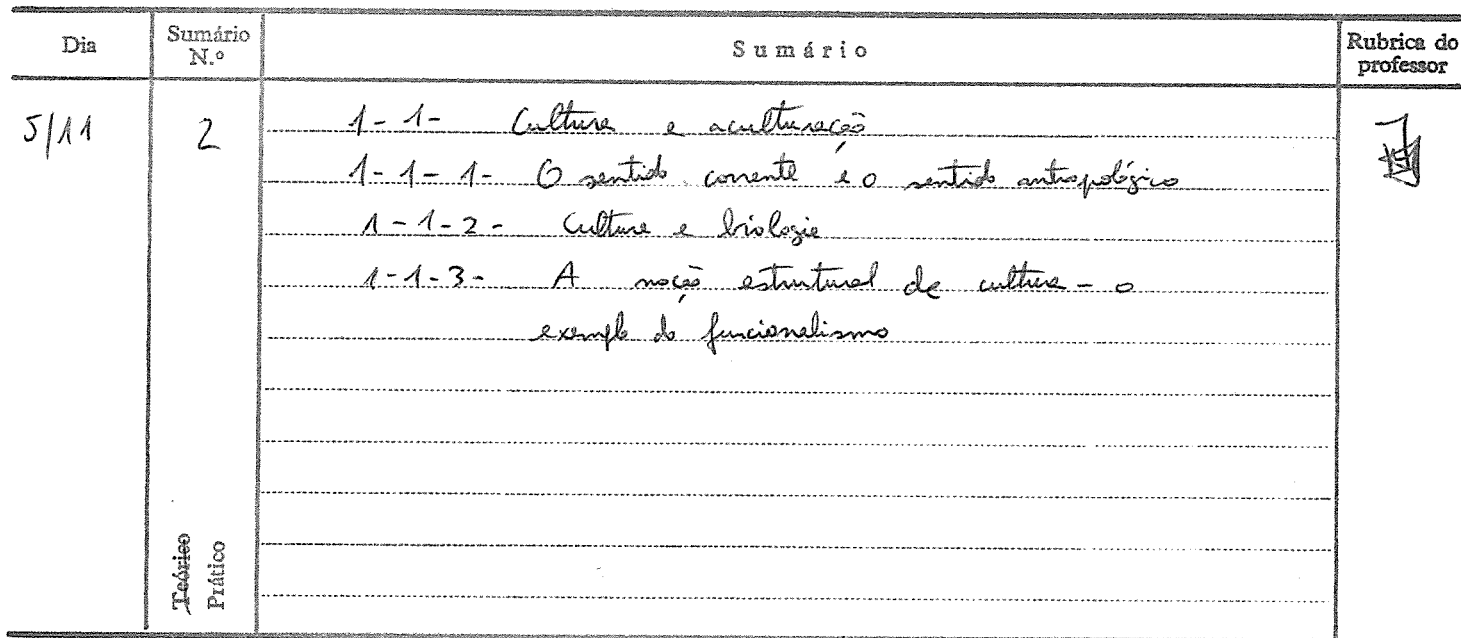 Dia
Sumário N.º
Sumário
Rubrica do professor
5/11
2
1-1- Cultura e aculturação
1-1-1- O sentido corrente e o sentido antropológico
1-1-2- Cultura e biologia
1-1-3- A noção estrutural de cultura - o
exemplo do funcionalismo
Teórico
Prático